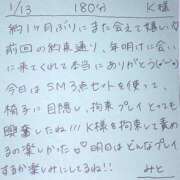 1/13 180分 K様
約1ヶ月ぶりにまた会えて嬉しい♡
前回の約束通り、年明けに会い
に来てくれて本当にありがとう(^o^)
今日はSM3点セットを使って、
椅子に目隠し、拘束プレイとっても
興奮したね!!! K様を拘束して責め
るの楽しかった♡ 明日はどんなプレイ
するか楽しみにしてるね!!
みと